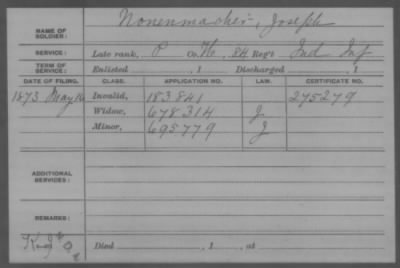 NAME OF SOLDIER: Nonenmacher, Joseph
SERVICE: Late rank, P Co. H, 84 Reg't Ind Inf
TERM OF SERVICE: Enlisted , 1 Discharged , 1
DATE OF FILING. CLASS. APPLICATION NO. LAW. CERTIFICATE NO.
1873 May 16 Invalid, 183841 275279
Widow, 678314 J
Minor, 695779 J
ADDITIONAL SERVICES:
REMARKS:
Died , 1 , at